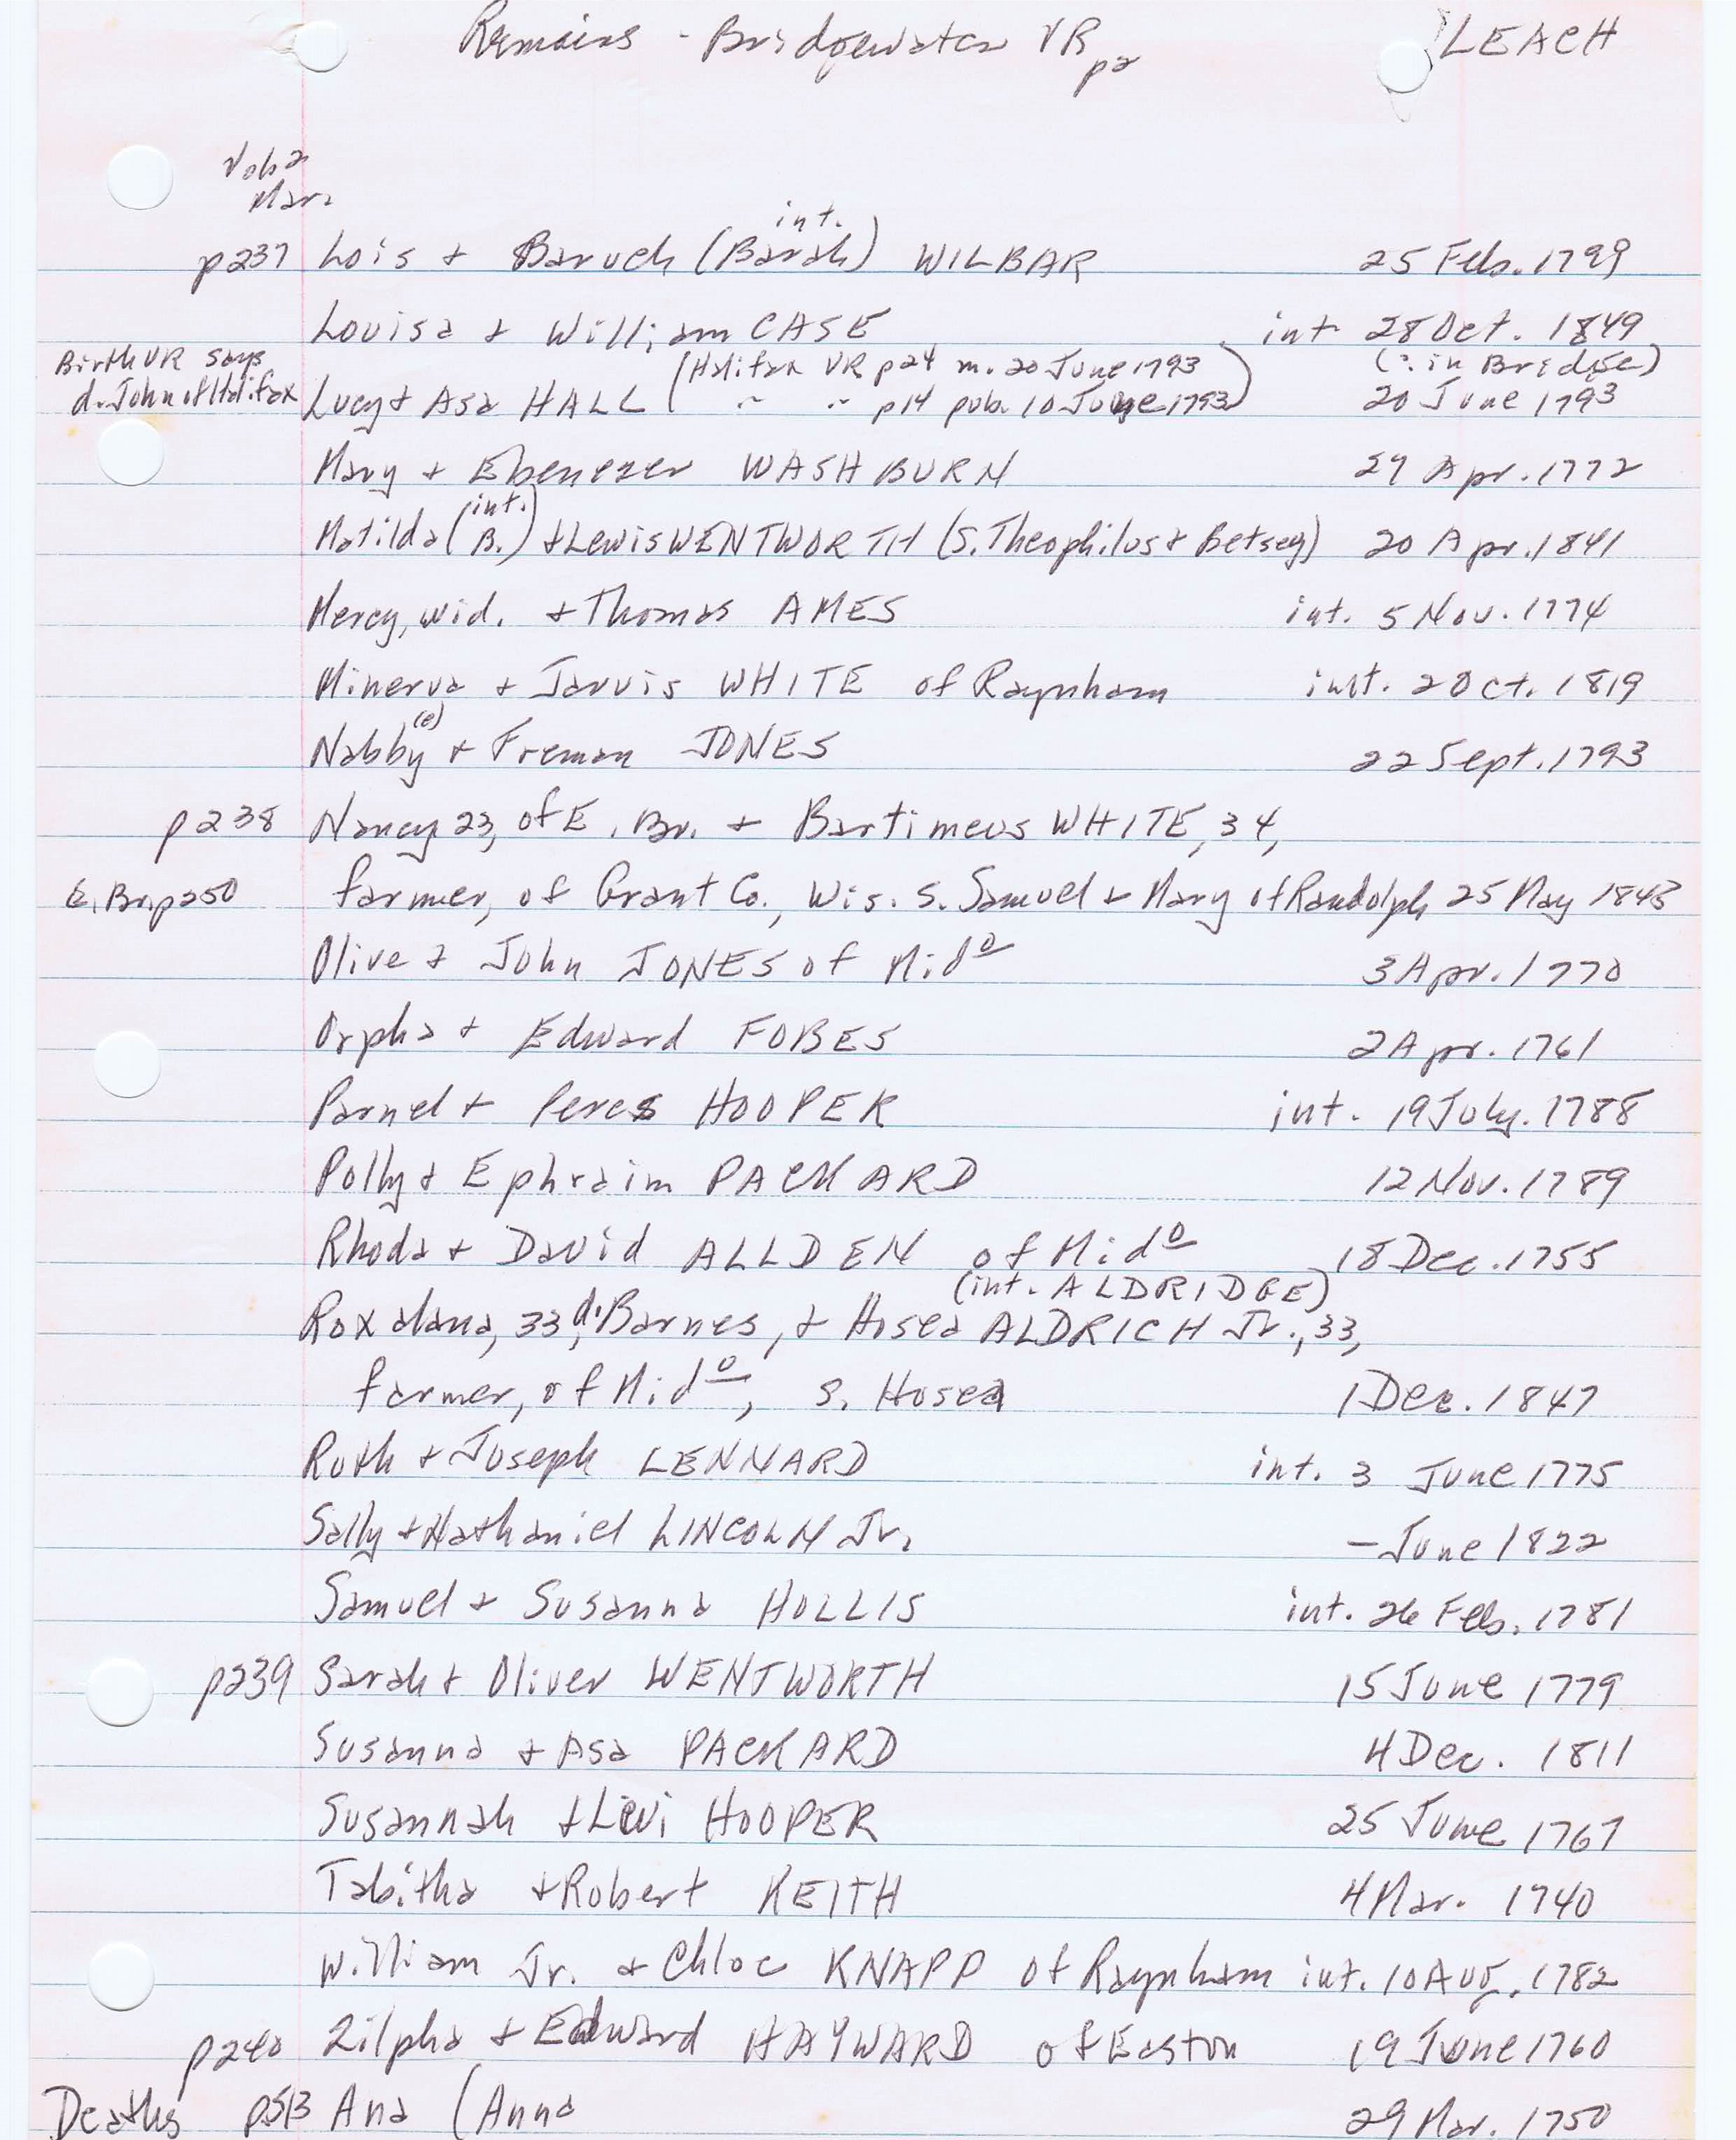 Remains - Bridgewater VR p2 LEACH
Vol. 2
Mar.
int.
p237 Lois + Baruch (Barah) WILBAR 25 Feb. 1799
Louisa + William CASE int 28 Oct. 1849
Birth VR says (Halifax VR p24 m. 20 June 1793 (: in Bridge)
d. John of Halifax Lucy + Asa HALL ( " " p14 pub. 10 June 1793) 20 June 1793
Mary + Ebenezer WASHBURN 29 Apr. 1772
(int.)
Matilda (B.) + Lewis WENTWORTH (s. Theophilus + Betsey) 20 Apr. 1841
Mercy, wid. + Thomas AMES int. 5 Nov. 1774
Minerva + Jarvis WHITE of Raynham int. 2 Oct. 1819
(e)
Nabby + Freman JONES 22 Sept. 1793
p238 Nancy 23, of E. Br. + Bartimeus WHITE, 34,
E. Br. p250 farmer, of Grant Co., Wis. s. Samuel + Mary of Randolph 25 May 1843
Olive + John JONES of Mido 3 Apr. 1770
Orpha + Edward FOBES 2 Apr. 1761
Parnel + Peres HOOPER int. 19 July. 1788
Polly + Ephraim PACKARD 12 Nov. 1789
Rhoda + David ALLDEN of Mido 18 Dec. 1755
(int. ALDRIDGE)
Roxalana, 33, d. Barnes, + Hosea ALDRICH Jr., 33,
farmer, of Mido, s. Hosea 1 Dec. 1847
Ruth + Joseph LENNARD int. 3 June 1775
Sally + Nathaniel LINCOLN Jr. - June 1822
Samuel + Susanna HOLLIS int. 26 Feb. 1781
p239 Sarah + Oliver WENTWORTH 15 June 1779
Susanna + Asa PACKARD 4 Dec. 1811
Susannah + Levi HOOPER 25 June 1767
Tabitha + Robert KEITH 4 Mar. 1740
William Jr. + Chloe KNAPP of Raynham int. 10 Aug. 1782
p240 Zilpha + Edward HAYWARD of Easton 19 June 1760
Deaths p513 Ana (Anna 29 Mar. 1750